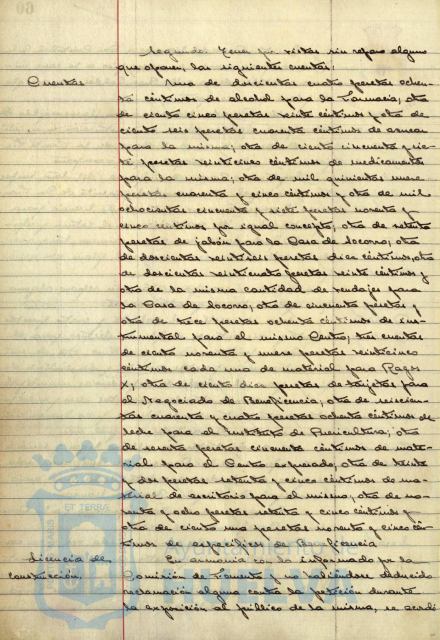 Segundo. Tener por vistas sin reparo alguno
que oponer, las siguientes cuentas:
Cuentas Una de doscientas cuatro pesetas ochen-
ta céntimos de alcohol para la Farmacia; otra
de ciento cinco pesetas veinte céntimos y otra de
ciento seis pesetas cuarenta céntimos de azucar
para la misma; otra de ciento cincuenta y sie-
te pesetas veinticinco céntimos de medicamentos
para la misma; otra de mil quinientas nueve
pesetas cuarenta y cinco céntimos y otra de mil
ochocientas cincuenta y siete pesetas noventa y
cinco céntimos por igual concepto; otra de setenta
pesetas de jabón para la Casa de Socorro; otra
de doscientas veintiséis pesetas diez céntimos, otra
de doscientas veinticuatro pesetas veinte céntimos y
otra de la misma cantidad de vendajes para
la Casa de Socorro; otra de cincuenta pesetas y
otra de trece pesetas ochenta céntimos de ins-
trumental para el mismo Centro; tres cuentas
de ciento noventa y nueve pesetas veinticinco
céntimos cada una de material para Rayos
X; otra de ciento diez pesetas de tarjetas para
el Negociado de Beneficencia; otra de seiscien-
tas cuarenta y cuatro pesetas ochenta céntimos de
leche para el Instituto de Puericultura; otra
de sesenta pesetas cincuenta céntimos de mate-
rial para el Centro expresado; otra de treinta
y dos pesetas setenta y cinco céntimos de ma-
terial de escritorio para el mismo; otra de no-
venta y ocho pesetas setenta y cinco céntimos y
otra de ciento una pesetas noventa y cinco cén-
timos de específicos de Beneficencia.
Licencia de En armonía con lo informado por la
construcción. Comisión de Fomento y no habiéndose deducido
reclamación alguna contra la petición durante
la exposición al público de la misma, se acordó